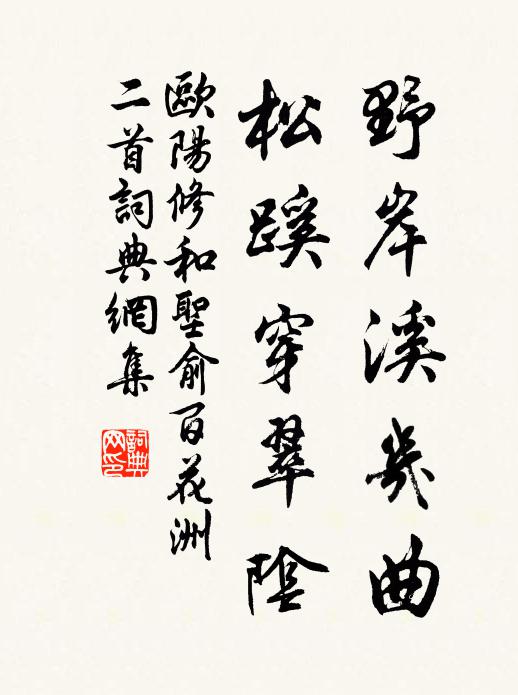 野岸溪幾曲
松蹊穿翠陰
歐陽修和聖俞百花洲
二首詞典網集
詞典
网印